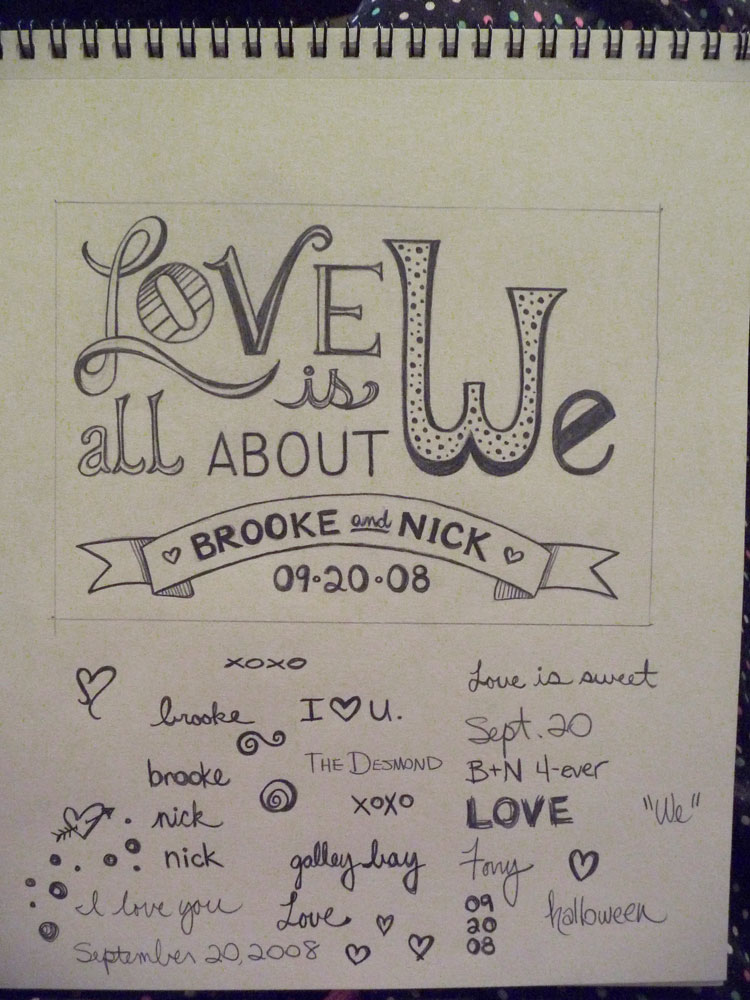 LOVE We
is
all ABOUT
BROOKE and NICK
09·20·08
xoxo
Love is sweet
brooke I ♥ U.
Sept. 20
THE DESMOND
brooke
B+N 4-ever
xoxo
nick
LOVE "We"
nick
galley bay
I love you
Love
09
20
08
halloween
September 20, 2008